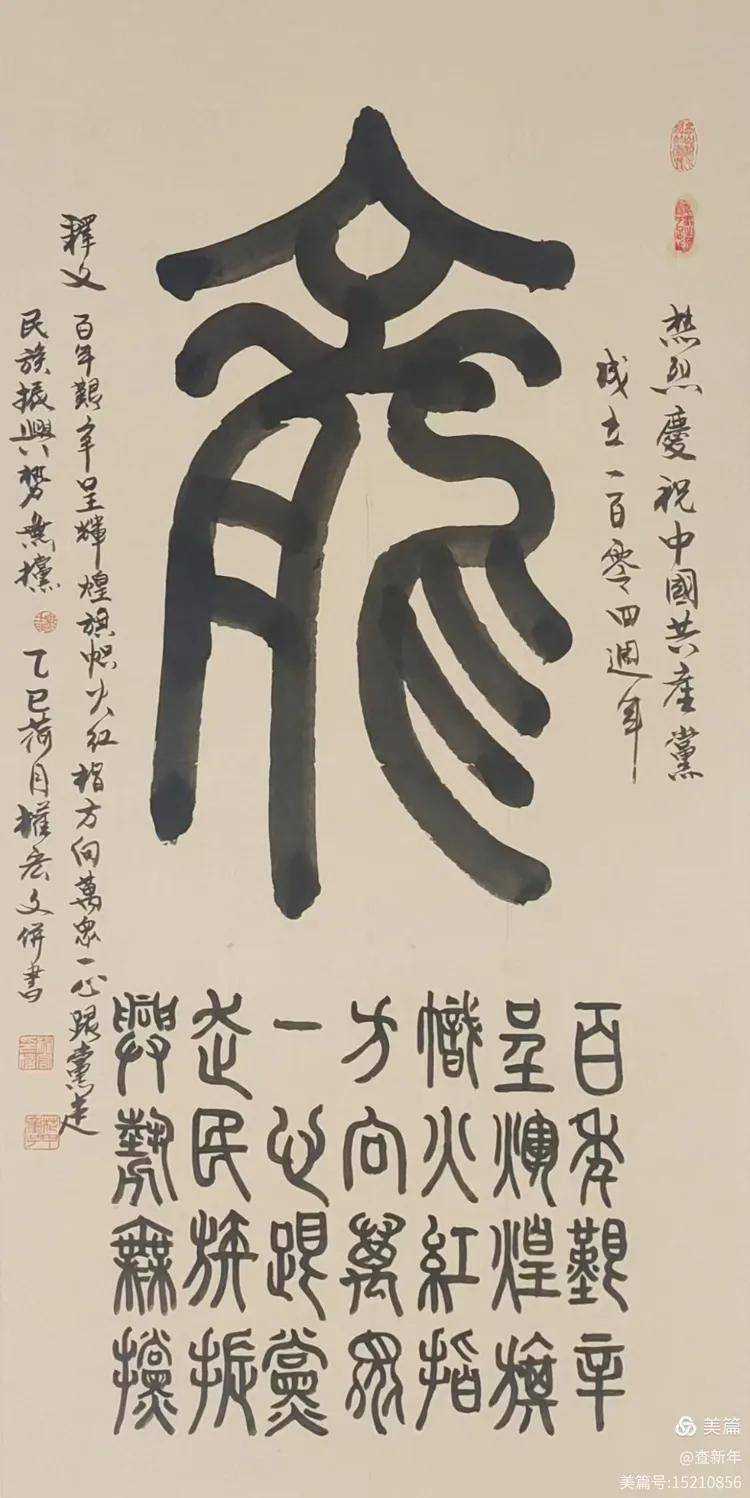 热烈慶祝中國共產黨
成立一百零四週年
龍
百年艱辛
呈輝煌旗
幟火紅指
方向萬眾
一心跟黨
走民族振
興勢無攩
釋文
百年艱辛呈輝煌旗幟火红指方向萬眾一心跟黨走
民族振興势無攩 乙巳荷月權宏文併書
美篇
@查新年
美篇号:15210856